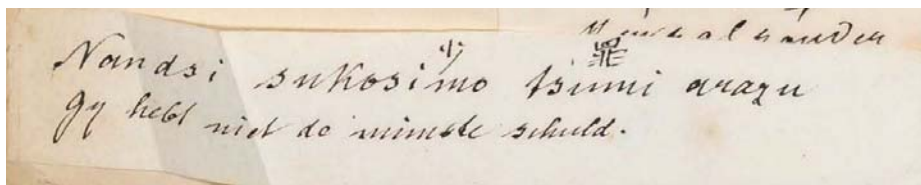 al
少 罪
Nandsi sukosimo tsumi arazu
Gy hebt niet de minste schuld.